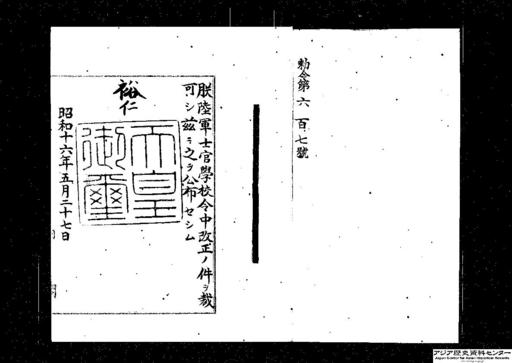 勅令第六百七號
朕陸軍士官學校令中改正ノ件ヲ裁
可シ茲ニ之ヲ公布セシム
裕仁
天皇御璽
昭和十六年五月二十七日
アジア歴史資料センター
Japan Center for Asian Historical Records